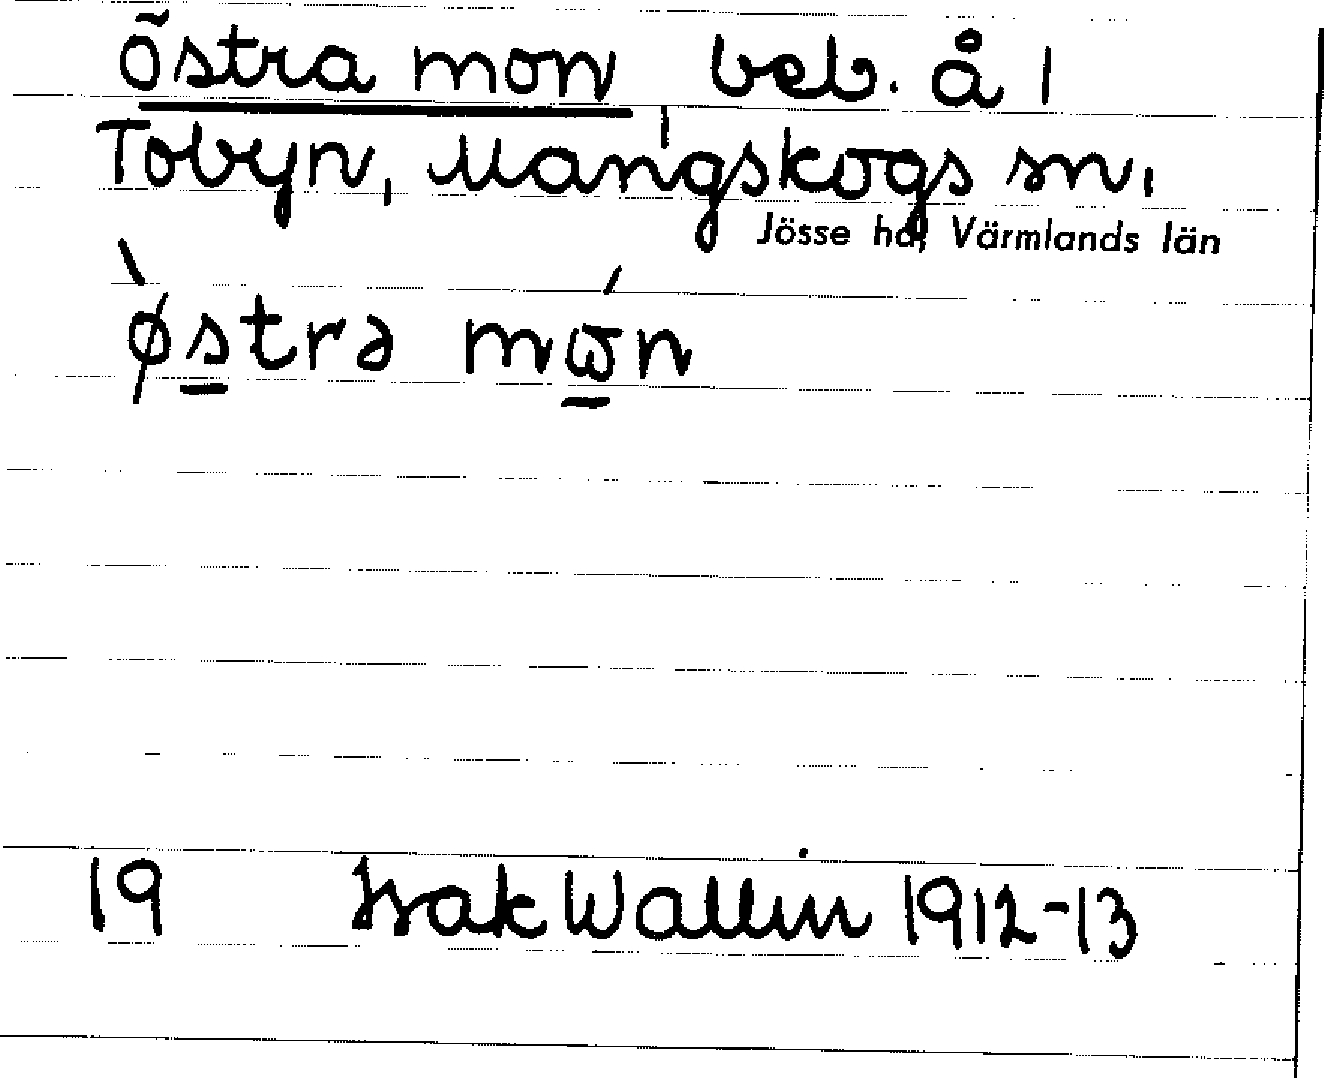 östra mon, beb. å 1
Tobyn, Mangskogs sn,
Jösse hd, Värmlands län
ø̀stra mώn
19 Isak Wallin 1912-13